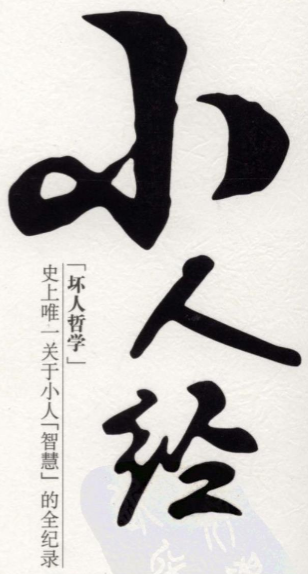 小人经
「坏人哲学」
史上唯一关于小人「智慧」的全纪录